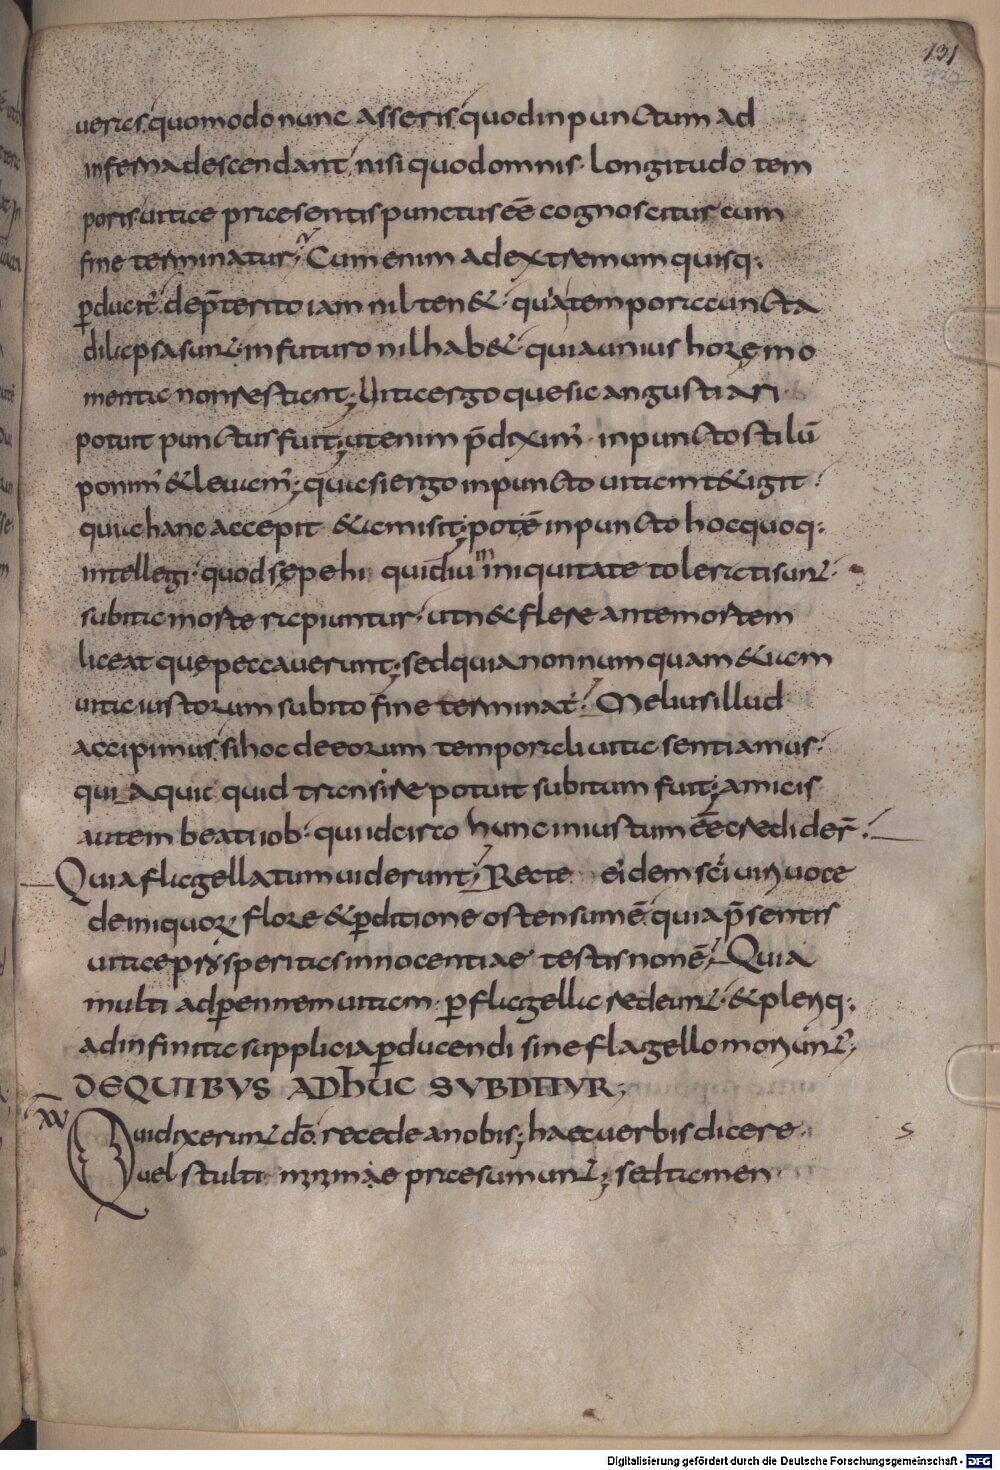 131
ueras. quomodo nunc asseris. quod in punctum ad
inferna descendant; nisi quod omnis longitudo tem
poris uitae praesentis punctus eē cognoscitur cum
fine terminatur; Cum enim ad extremum quisq;
ꝑducit̃. de p̄terito iam nil ten&. quia tempora cuncta
dilapsa sunt. in futuro nil hab& quia unius horę mo
menta non restant; Uita ergo que sic angustiari
potuit punctus fuit; ut enim p̄diximꝰ. in puncto stilū
ponimꝰ & leuamꝰ; quasi ergo in puncto uitam t&igit
qui hanc accepit & amisit; potē in puncto hoc quoq;
intellegi. quod sępe hi qui diu in iniquitate tolerati sunt.
subita morte rapiuntur. ut n& flere ante mortem
liceat quę peccauerunt; sed quia non numquam &iam
uita iustorum subito fine terminat̃; Melius illud
accipimus. si hoc de eorum temporali uita sentiamus.
quia quic quid transire potuit subitum fuit; amicis
autem beati iob. qui idcirco hunc iniustum eē credider̄.
Quia flagellatum uiderunt; Recte eidem sc̄i uiri uoce
de iniquoꝝ flore & ꝑditione ostensum ē. quia p̄sentis
uitae prosperitas innocentiae testis non ē; Quia
multi ad ꝑennem uitam ꝑ flagella redeunt. & pleriq;
ad infinita supplicia ꝑducendi sine flagello moriunt̃;
DE QUIBVS ADHUC SVBDITVR;
XV
Qui dixerunt dō. recede a nobis; haec uerbis dicere
uel stulti minime praesumunt; sed tamen
Digitalisierung gefördert durch die Deutsche Forschungsgemeinschaft - DFG